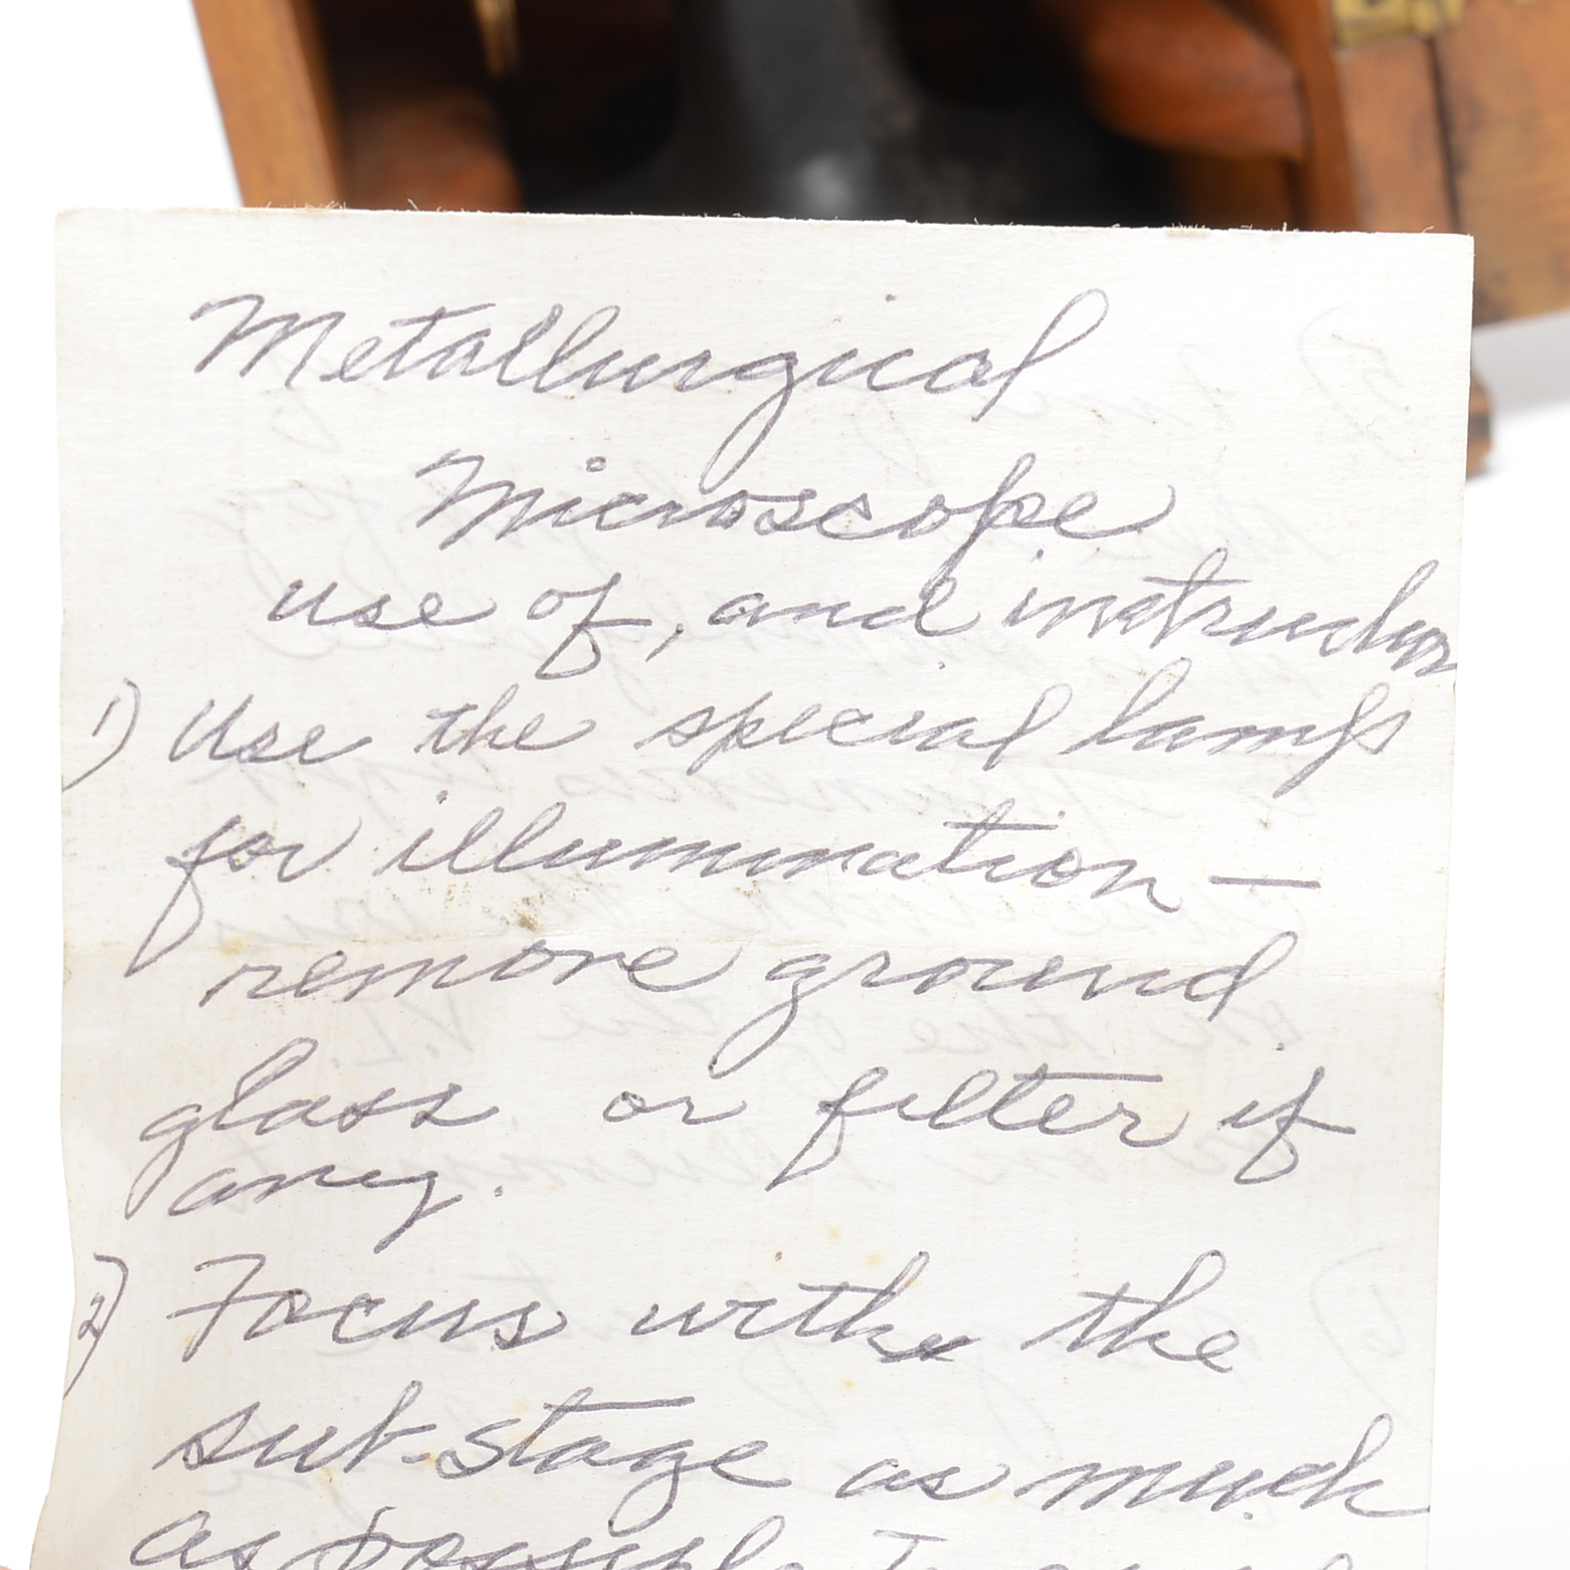 Metallurgical
Microscope
use of, and instruction
1) Use the special lamps
for illumination —
remove ground
glass or filter if
any.
2) Focus with the
sub-stage as much
as possible to